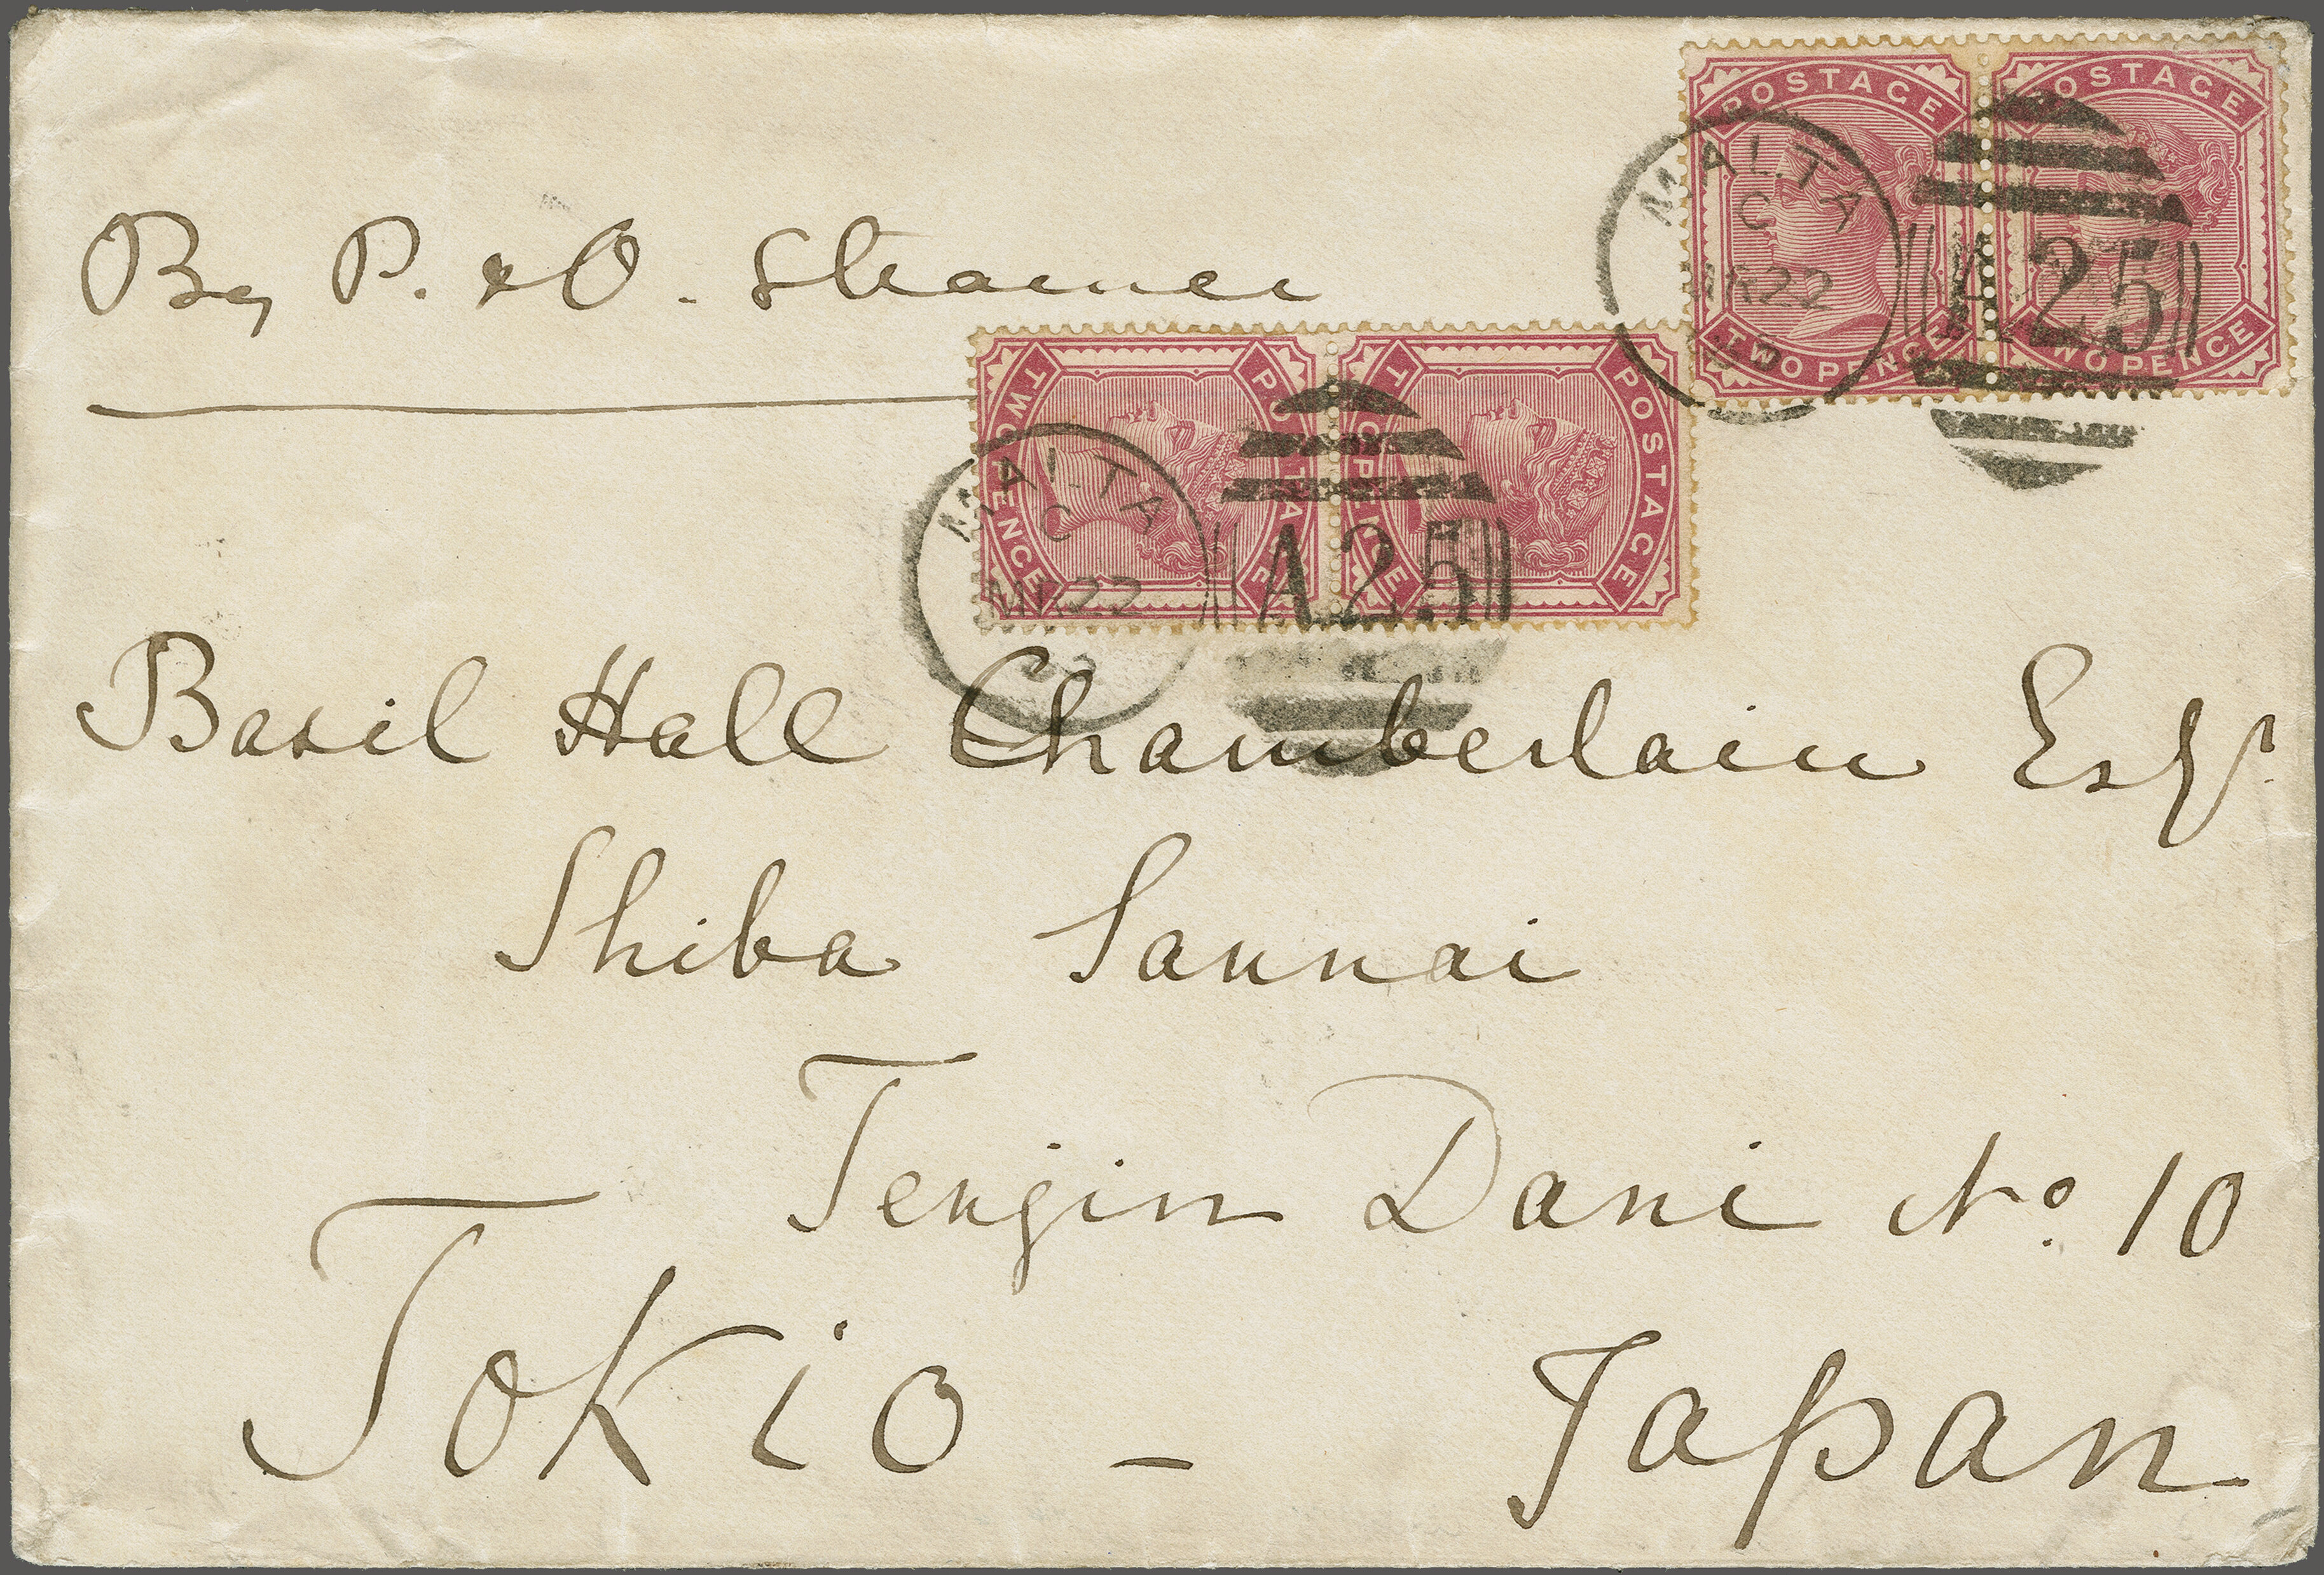 By P. & O. Steamer
POSTAGE
TWO PENCE
POSTAGE
TWO PENCE
MALTA
C
MR 22
A25
POSTAGE
TWO PENCE
POSTAGE
TWO PENCE
MALTA
C
MR 22
A25
Basil Hall Chamberlain Esqr.
Shiba Sannai
Tenjin Dani No. 10
Tokio - Japan